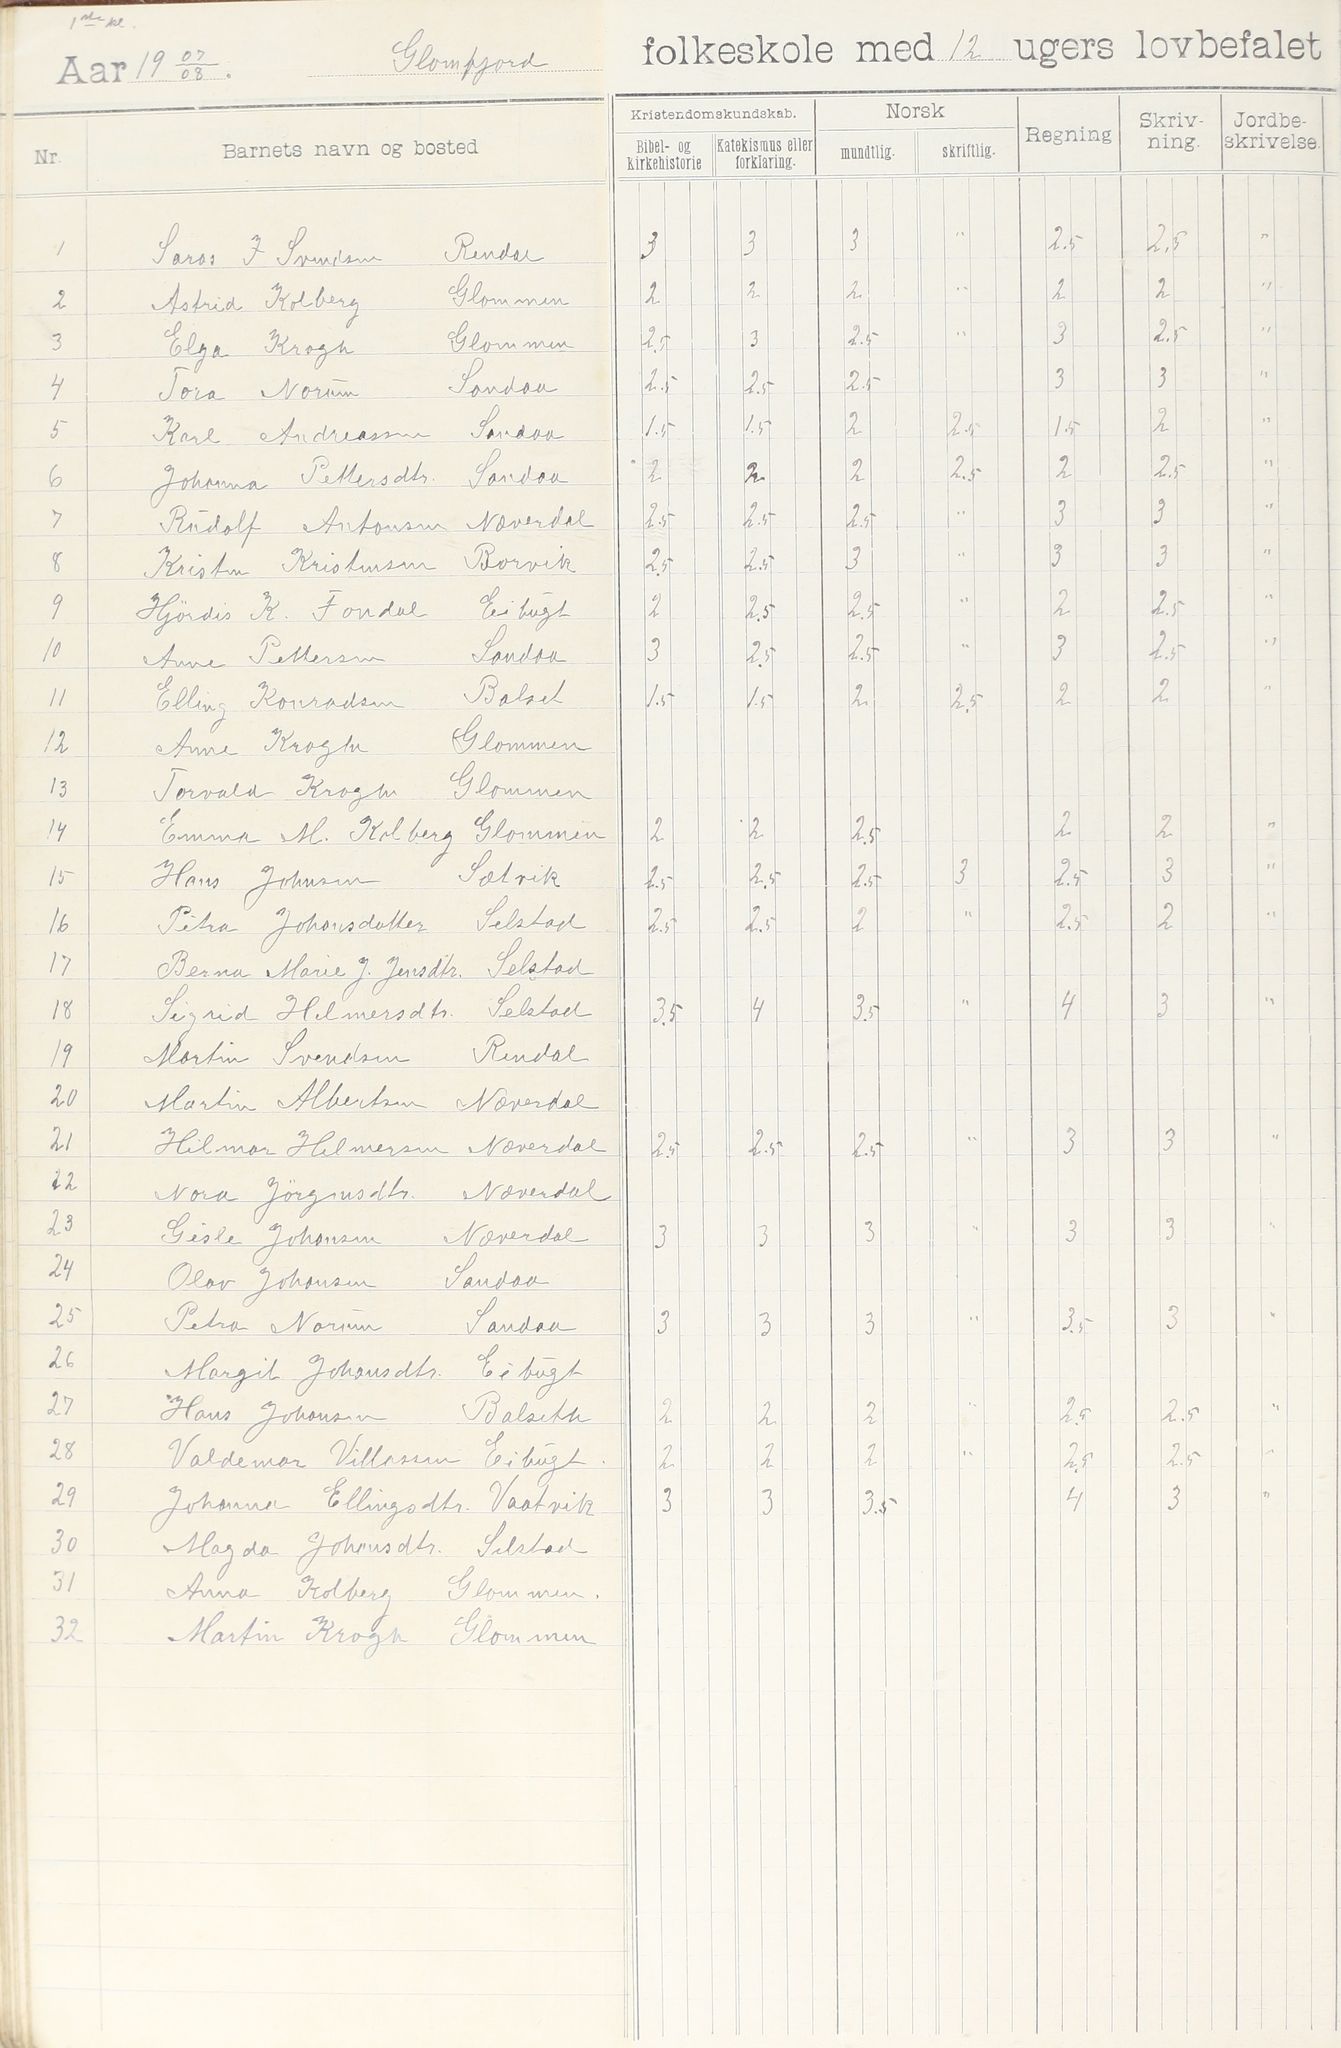 1ste kl.
Aar 19 07/08. Glomfjord folkeskole med 12 ugers lovbefalet
Nr. Barnets navn og bosted Kristendomskundskab. Bibel- og kirkehistorie Katekismus eller forklaring. Norsk mundtlig. skriftlig. Regning Skriv-ning. Jordbe-skrivelse.
1 Svendsen Rendal 3 3 3 " 2.5 2.5 "
2 Astrid Kolberg Glommen 2 2 2 " 2 2 "
3 Elga Krogh Glommen 2.5 3 2.5 " 3 2.5 "
4 Tora Norum Sandaa 2.5 2.5 2.5 3 3 "
5 Karl Andreassen Sandaa 1.5 1.5 2 2.5 1.5 2 "
6 Johanna Pettersdtr. Sandaa 2 2 2 2.5 2 2.5 "
7 Rudolf Antonsen Næverdal 2.5 2.5 2.5 " 3 3 "
8 Kristen Kristensen Borvik 2.5 2.5 3 " 3 3 "
9 Hjördis K. Fondal Eibugt 2 2.5 2.5 " 2 2.5 "
10 Anne Pettersen Sandaa 3 2.5 2.5 " 3 2.5 "
11 Elling Konradsen Balset 1.5 1.5 2 2.5 2 2 "
12 Anne Krogh Glommen
13 Torvald Krogh Glommen
14 Emma M. Kolberg Glommen 2 2 2.5 2 2 "
15 Hans Johnsen Sætvik 2.5 2.5 2.5 3 2.5 3 "
16 Petra Johansdatter Selstad 2.5 2.5 2 " 2.5 2 "
17 Berna Marie J. Jensdtr. Selstad
18 Sigrid Hilmersdtr. Selstad 3.5 4 3.5 " 4 3 "
19 Martin Svendsen Rendal
20 Martin Albertsen Næverdal
21 Hilmar Hilmersen Næverdal 2.5 2.5 2.5 " 3 3 "
22 Nora Jörgensdtr. Næverdal
23 Gisle Johansen Næverdal 3 3 3 " 3 3 "
24 Olav Johansen Sandaa
25 Petra Norum Sandaa 3 3 3 " 3.5 3 "
26 Margit Johansdtr. Eibugt
27 Hans Johansen Balseth 2 2 2 " 2.5 2.5 "
28 Valdemar Villassen Eibugt. 2 2 2 " 2.5 2.5 "
29 Johanna Ellingsdtr. Vaatvik 3 3 3.5 4 3 "
30 Magda Johansdtr. Selstad
31 Anna Kolberg Glommen.
32 Martin Krogh Glommen